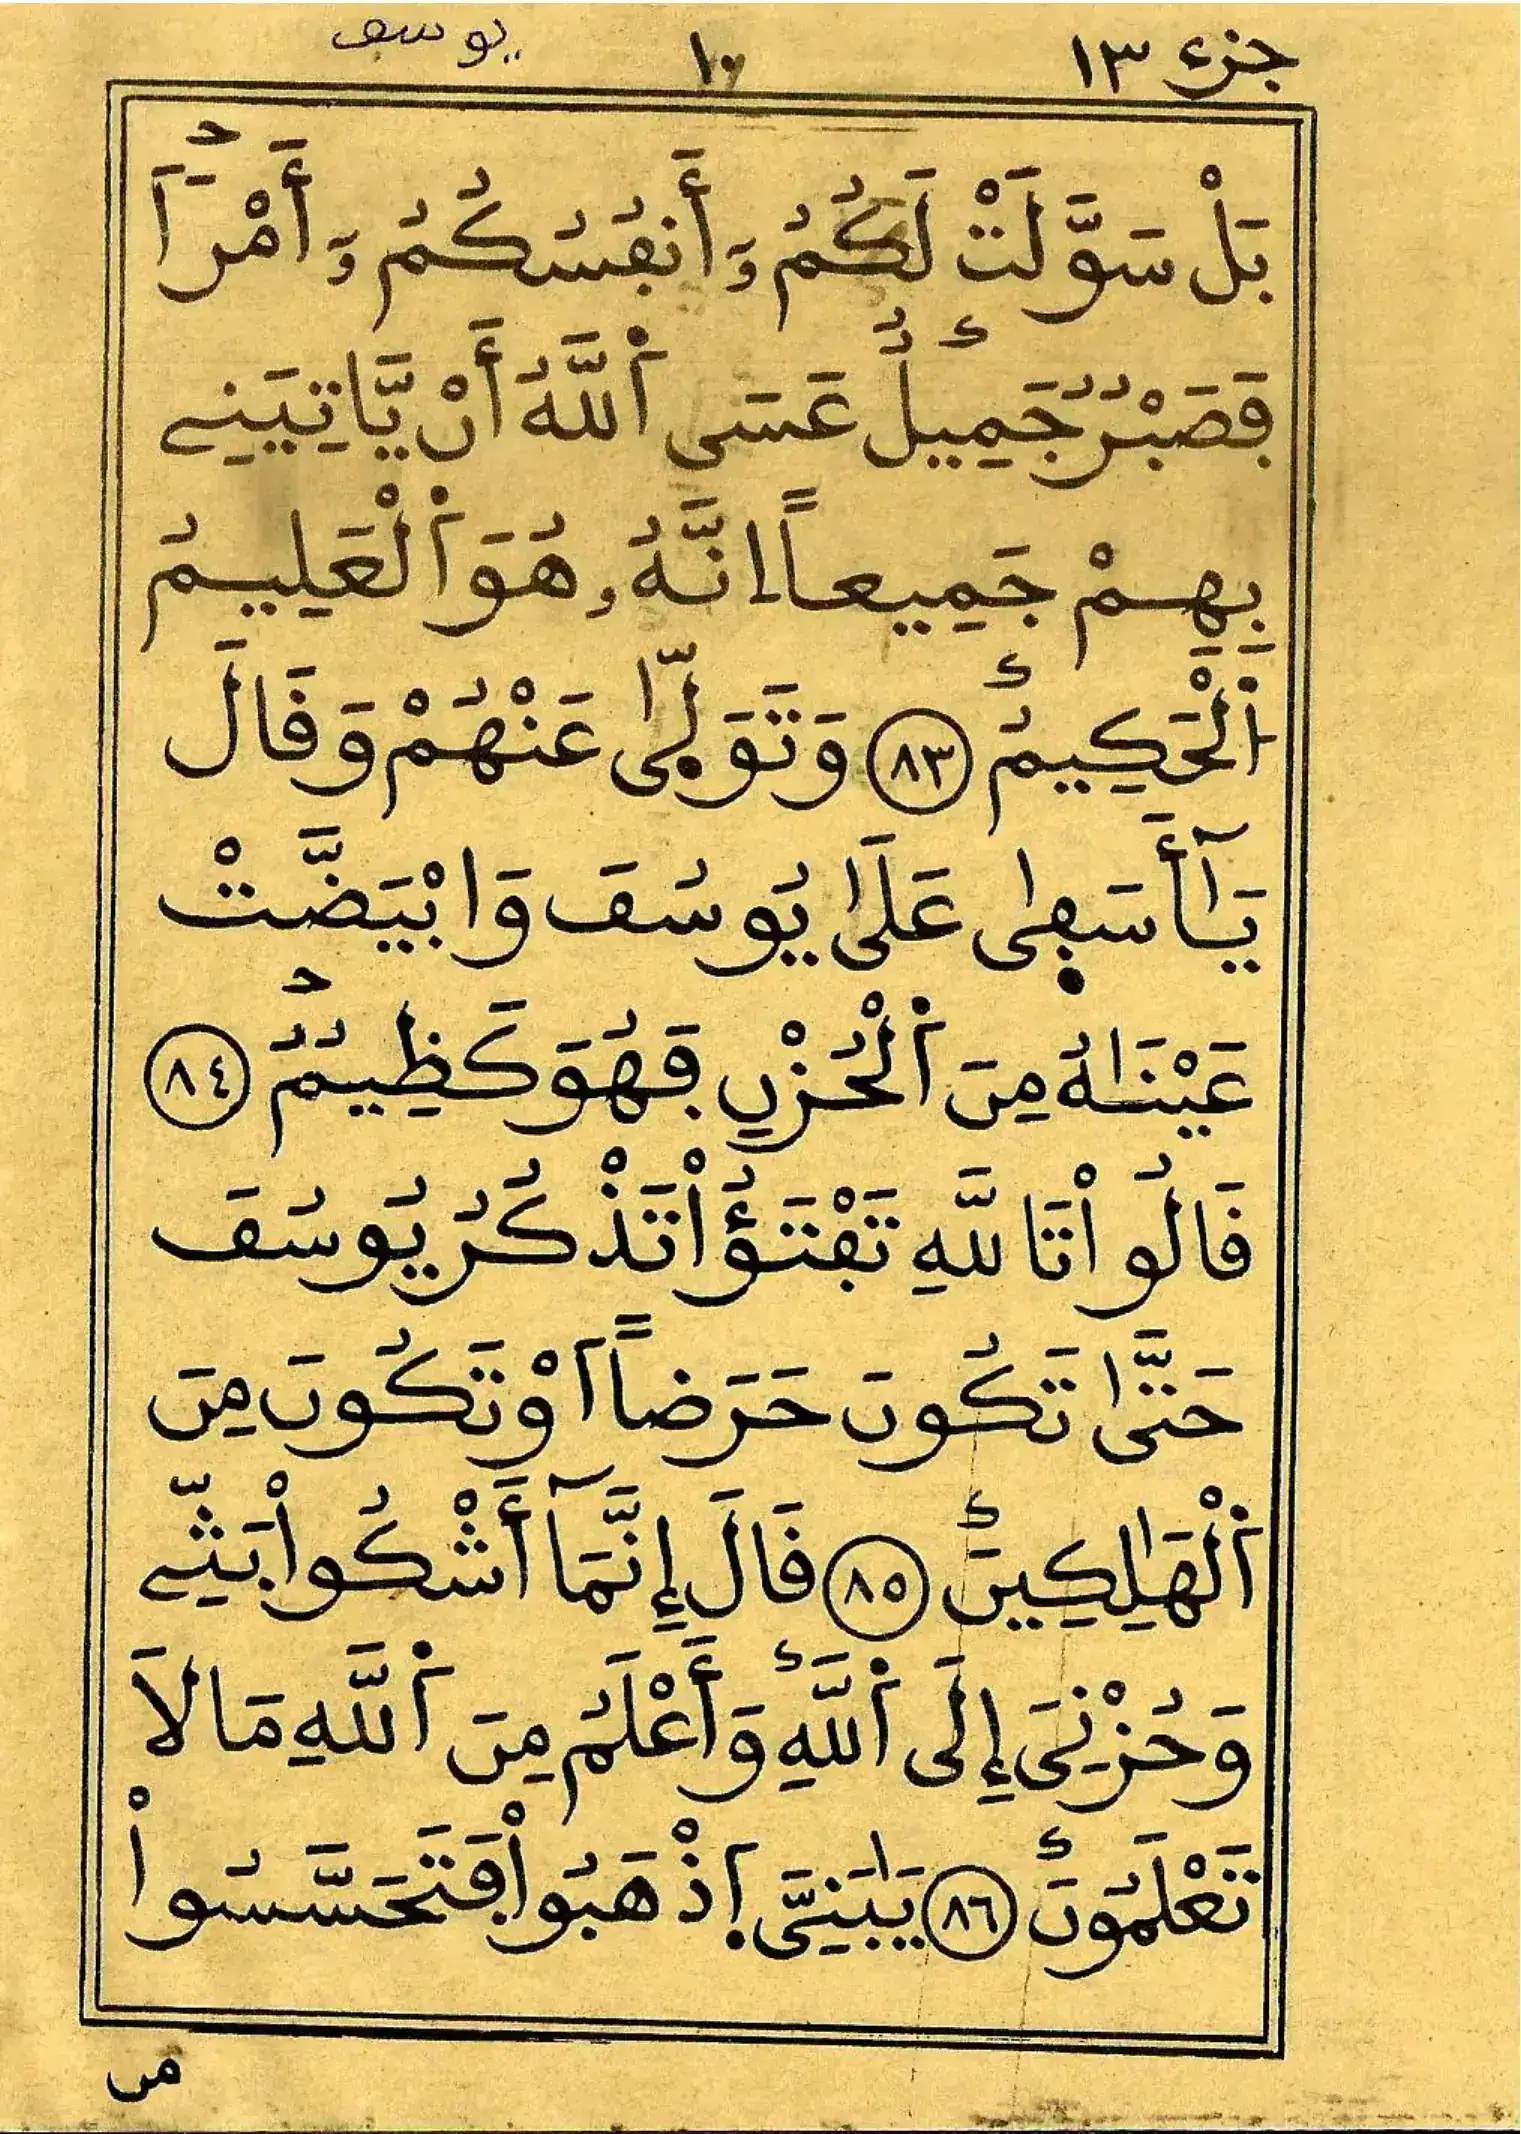 جزء ١٣ ١٠ يوسف
بَلْ سَوَّلَتْ لَكُمُۥٓ أَنفُسُكُمُۥٓ أَمْراٗ
فَصَبْرٌ جَمِيلٌ عَسَى ٱللَّهُ أَنْ يَّاتِيَنِے
بِهِمْ جَمِيعاً إِنَّهُۥ هُوَ ٱلْعَلِيمُ
ٱلْحَكِيمُ ٨٣ وَتَوَلّٰى عَنْهُمْ وَقَالَ
يَـٰٓأَسَفٰى عَلَىٰ يُوسُفَ وَابْيَضَّتْ
عَيْنَـٰهُ مِنَ ٱلْحُزْنِ فَهُوَ كَظِيمٌ ٨٤
قَالُواْ تَاللَّهِ تَفْتَؤُاْ تَذْكُرُ يُوسُفَ
حَتَّىٰ تَكُونَ حَرَضاً اَوْ تَكُونَ مِنَ
ٱلْهَـٰلِكِينَ ٨٥ قَالَ إِنَّمَآ أَشْكُواْ بَثِّے
وَحُزْنِيَ إِلَى ٱللَّهِ وَأَعْلَمُ مِنَ ٱللَّهِ مَا لاَ
تَعْلَمُونَ ٨٦ يَـٰبَنِيَّ ٱذْهَبُواْ فَتَحَسَّسُواْ
من